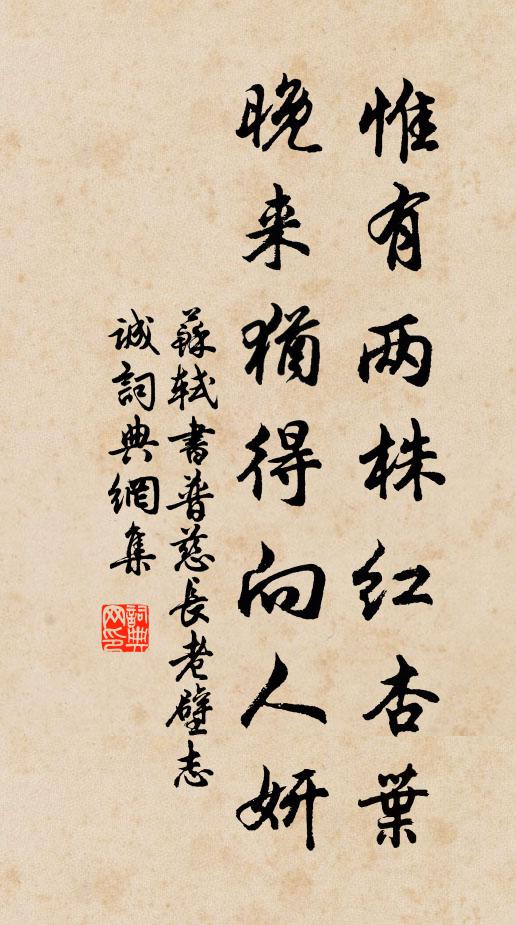 惟有两株红杏葉
晚来猶得向人妍
蘇軾書普慈長老壁志
誠詞典網集
詞典网印